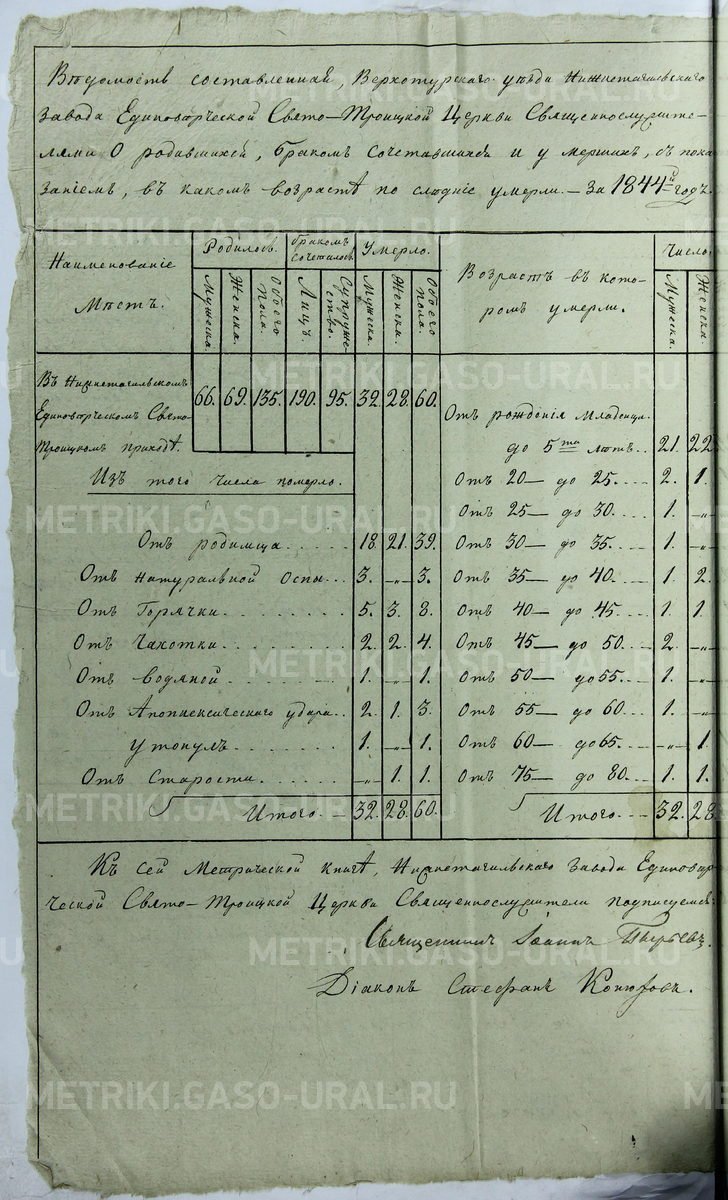 Ведомость составленная, Верхотурскаго уезда Нижнетагильскаго
завода Единоверческой Свято-Троицкой Церкви Священнослужите-
лями О родившихся, бракомъ Сочетавшихся и умершихъ, съ пока
занiемъ, въ какомъ возрастѣ по слѣднiе умерли. — За 1844й годъ.
Наименованiе Мѣстъ. Родилось. бракомъ сочеталось. Умерло. Возрастъ въ кото- ромъ умерли. Число
Мужеска. Женска. Обоего пола. Лицъ. Супруже- ство. Мужеска. Женска. Обоего пола. Мужеска. Женска.
Въ Нижнетагильскомъ 66. 69. 135. 190. 95. 32. 28. 60.
Единоверческомъ Свято- Отъ рожденiя Младенца.
Троицкомъ приходѣ. до 5ти лѣтъ. 21. 22
Изъ того числа померло. Отъ 20 — до 25. 2. 1.
Отъ 25 — до 30. 1. -„-
Отъ родимца 18. 21. 39. Отъ 30 — до 35. 1. -„-
Отъ натуральной Оспы 3. -„- 3. Отъ 35 — до 40. 1. 2.
Отъ Горячки 5. 3. 8. Отъ 40 — до 45. 1. 1.
Отъ Чахотки 2. 2. 4. Отъ 45 — до 50. 2. -„-
Отъ водяной 1. -„- 1. Отъ 50 — до 55. 1. -„-
Отъ Апоплексическаго удара 2. 1. 3. Отъ 55 — до 60. 1. -„-
утонулъ 1. -„- 1. Отъ 60 — до 65. -„- 1.
Отъ Старости -„- 1. 1. Отъ 75 — до 80. 1. 1.
Итого. — 32. 28. 60. Итого. — 32. 28
Къ сей Метрической книгѣ, Нижнетагильскаго завода Единовѣр
ческой Свято-Троицкой Церкви Священнослужители подписуемся:
Священникъ Iоаннъ
Дiаконъ Стефанъ Конюховъ.
METRIKI.GASO-URAL.RU